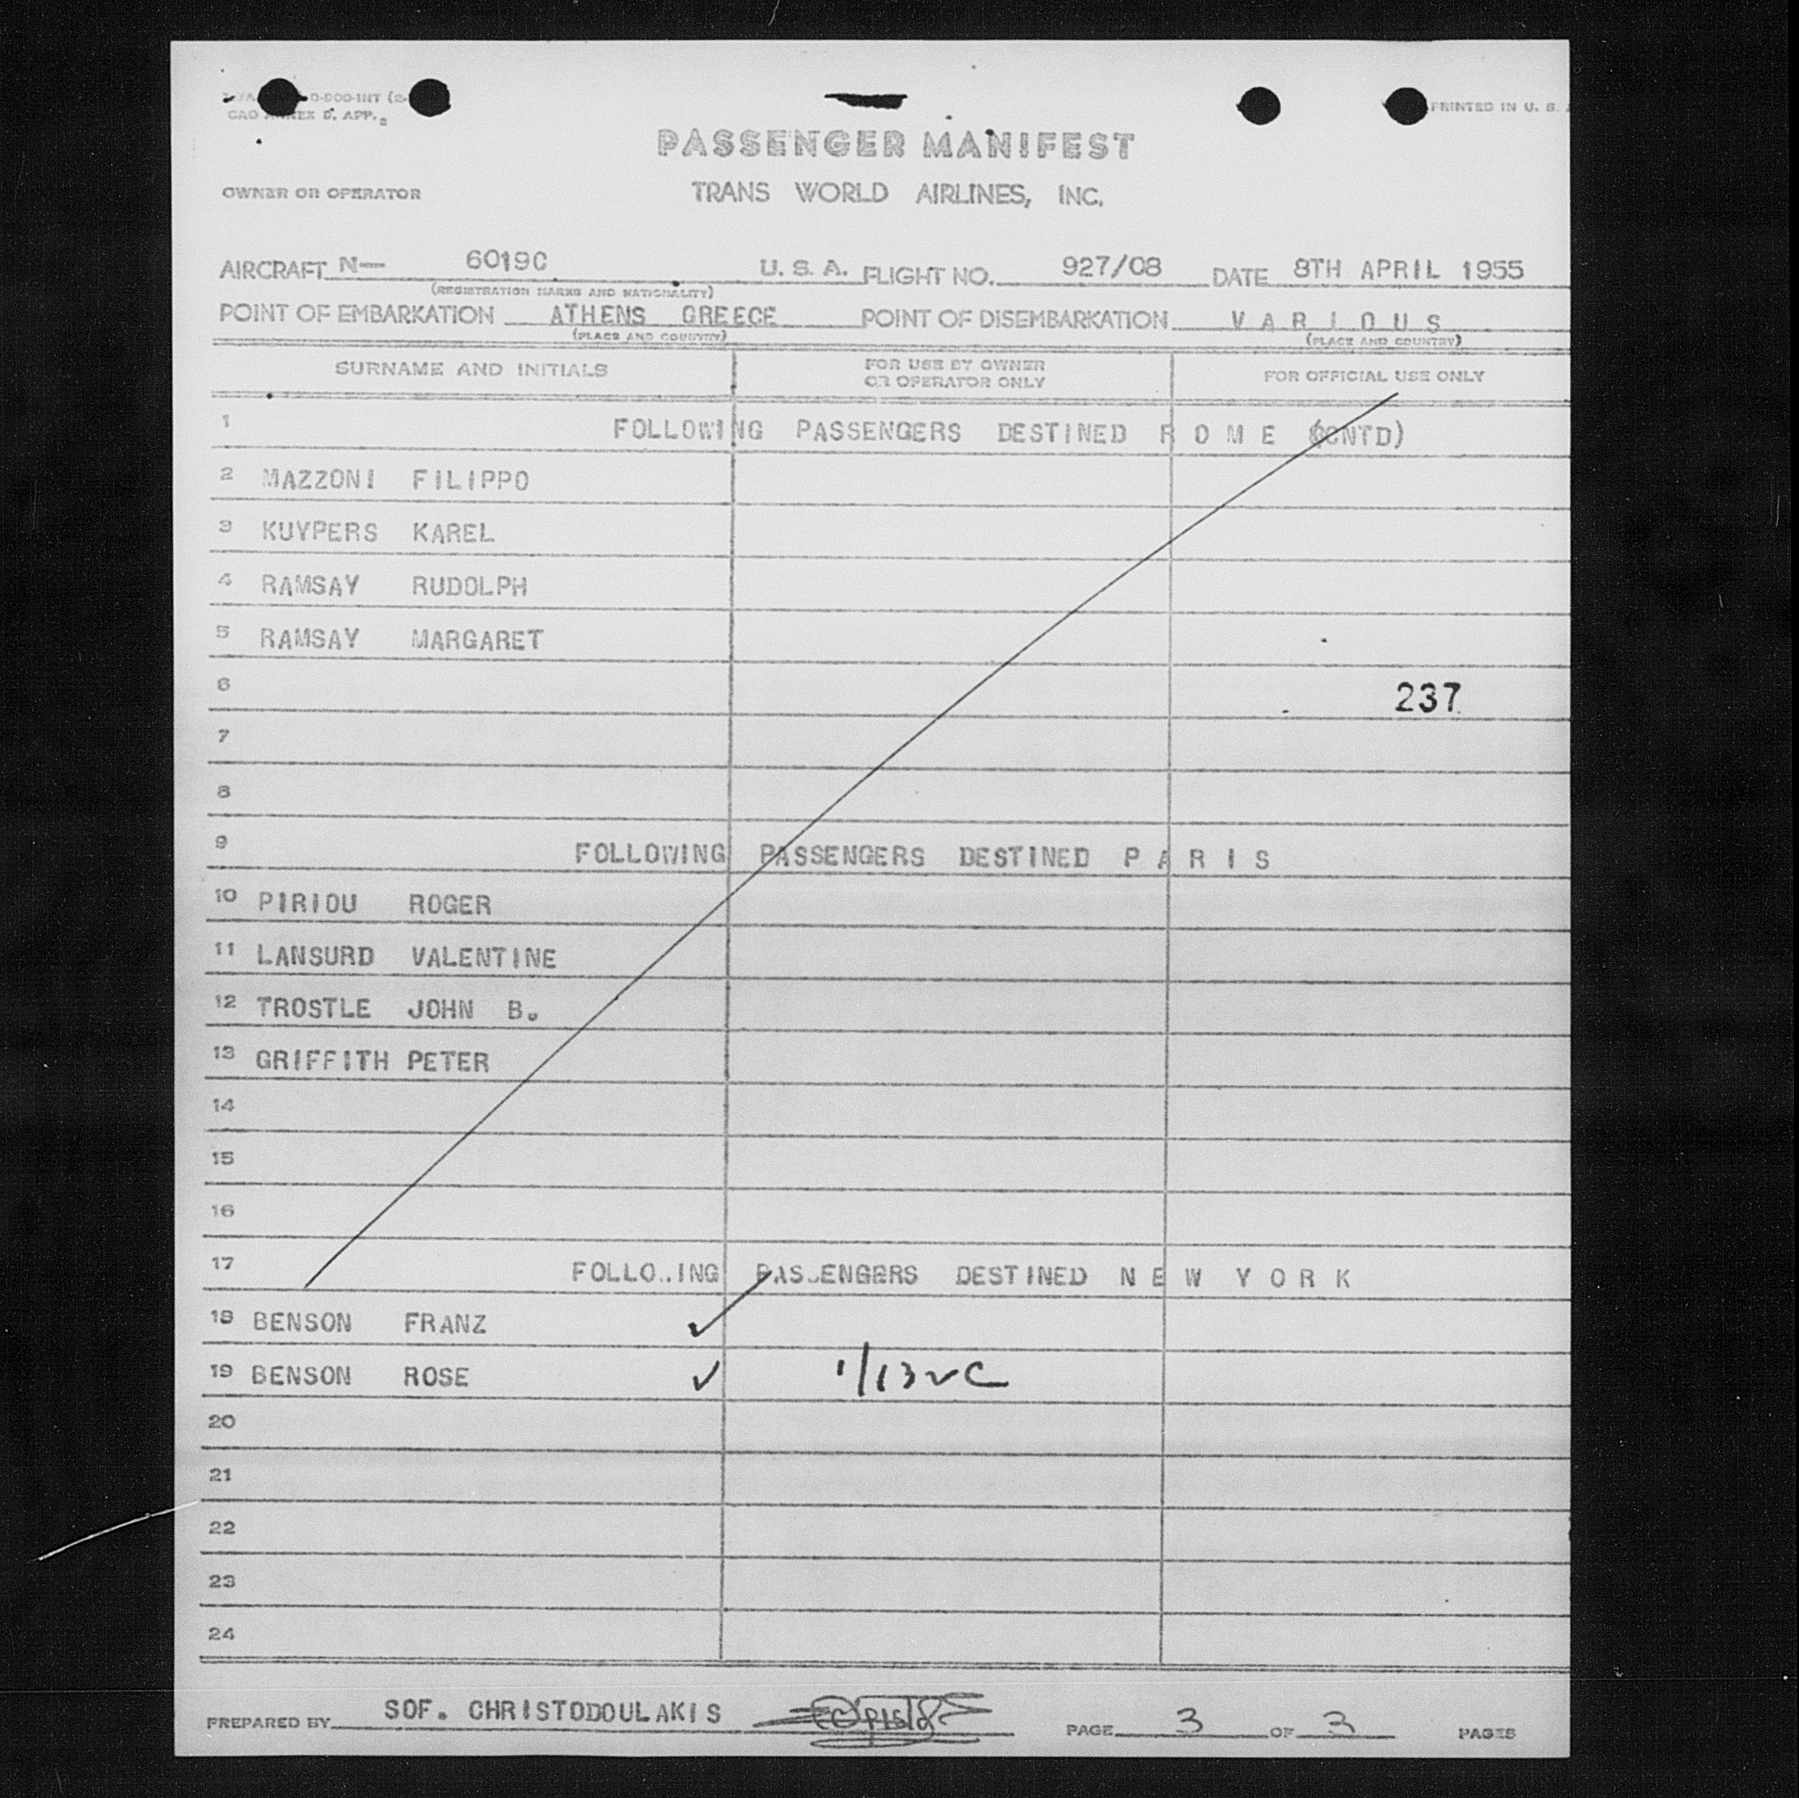 CAO ANNEX D. APP.
PRINTED IN U. S.
PASSENGER MANIFEST
OWNER OR OPERATOR TRANS WORLD AIRLINES, INC.
AIRCRAFT N— 6019C U. S. A. FLIGHT NO. 927/08 DATE 8TH APRIL 1955
(REGISTRATION MARKS AND NATIONALITY)
POINT OF EMBARKATION ATHENS GREECE POINT OF DISEMBARKATION V A R I O U S
(PLACE AND COUNTRY) (PLACE AND COUNTRY)
SURNAME AND INITIALS FOR USE BY OWNER OR OPERATOR ONLY FOR OFFICIAL USE ONLY
1 FOLLOWING PASSENGERS DESTINED R O M E (CNTD)
2 MAZZONI FILIPPO
3 KUYPERS KAREL
4 RAMSAY RUDOLPH
5 RAMSAY MARGARET
6 237
7
8
9 FOLLOWING PASSENGERS DESTINED P A R I S
10 PIRIOU ROGER
11 LANSURD VALENTINE
12 TROSTLE JOHN B.
13 GRIFFITH PETER
14
15
16
17 FOLLO..ING PASSENGERS DESTINED N E W Y O R K
18 BENSON FRANZ ✓
19 BENSON ROSE ✓
20
21
22
23
24
PREPARED BY SOF. CHRISTODOULAKIS PAGE 3 OF 3 PAGES